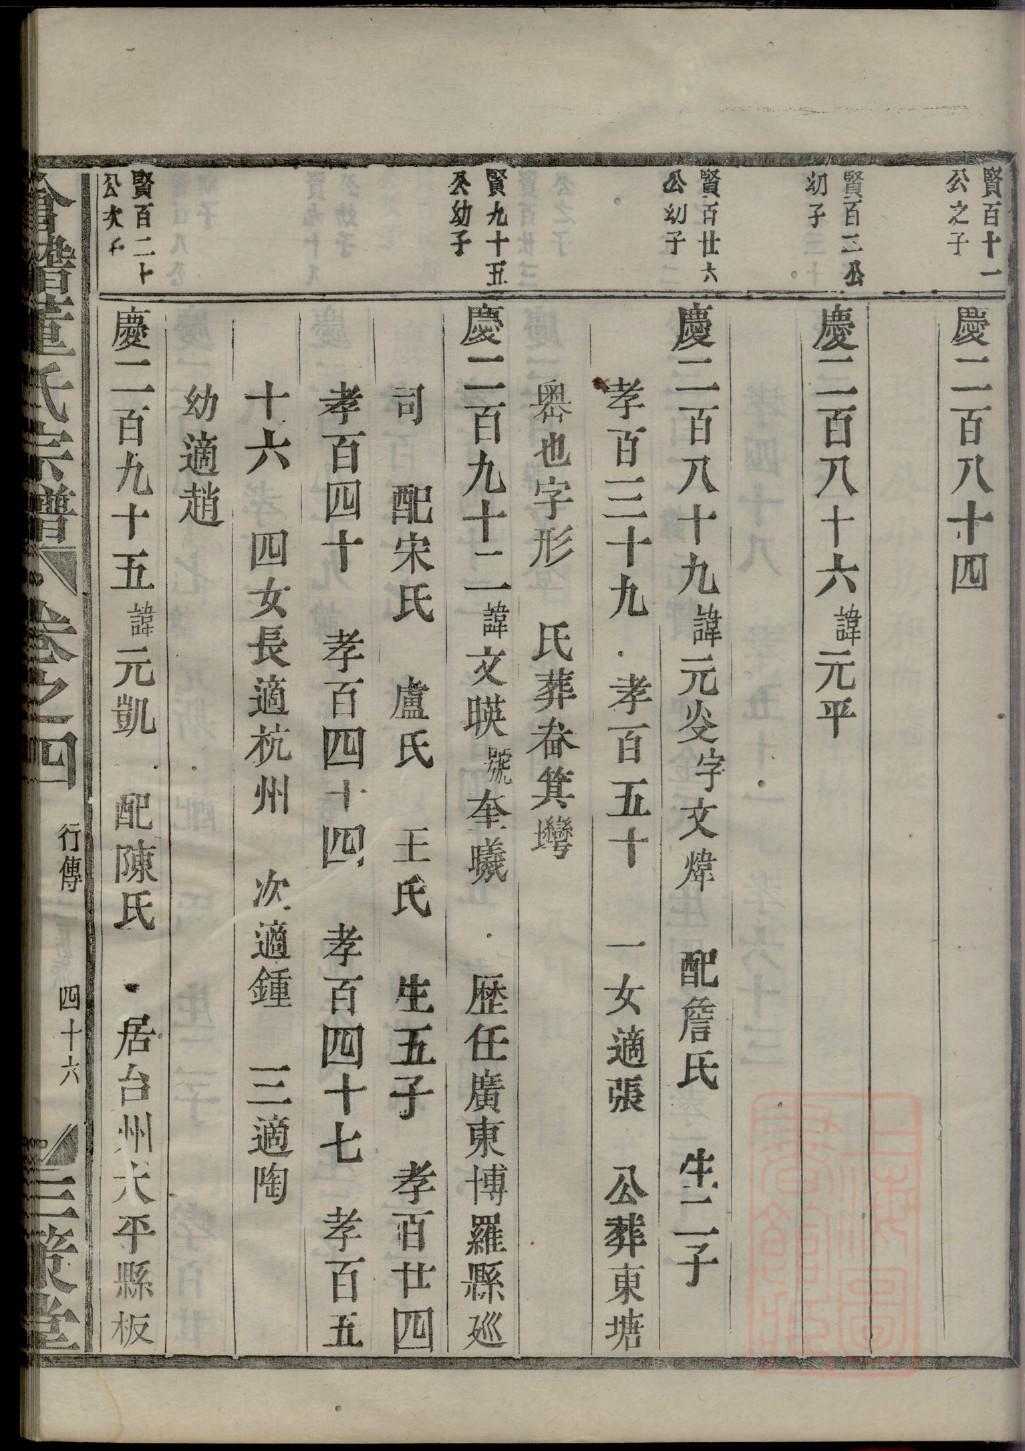 賢百十一
公之子
慶二百八十四
賢百三公
幼子
慶二百八十六諱元平
賢百廿六
公幼子
慶二百八十九諱元炎字文煒 配詹氏 生二子
孝百三十九 孝百五十 一女適張 公葬東塘
嶴也字形 氏葬畚箕灣
賢九十五
公幼子
慶二百九十二諱文暎號奎曦 歷任廣東博羅縣廵
司 配宋氏 盧氏 王氏 生五子 孝百廿四
孝百四十 孝百四十四 孝百四十七 孝百五
十六 四女長適杭州 次適鍾 三適陶
幼適趙
賢百二十
公次子
慶二百九十五諱元凱 配陳氏 居台州太平縣板
會稽董氏宗譜 卷之四 行傳 四十六 三策堂
上海圖書館藏